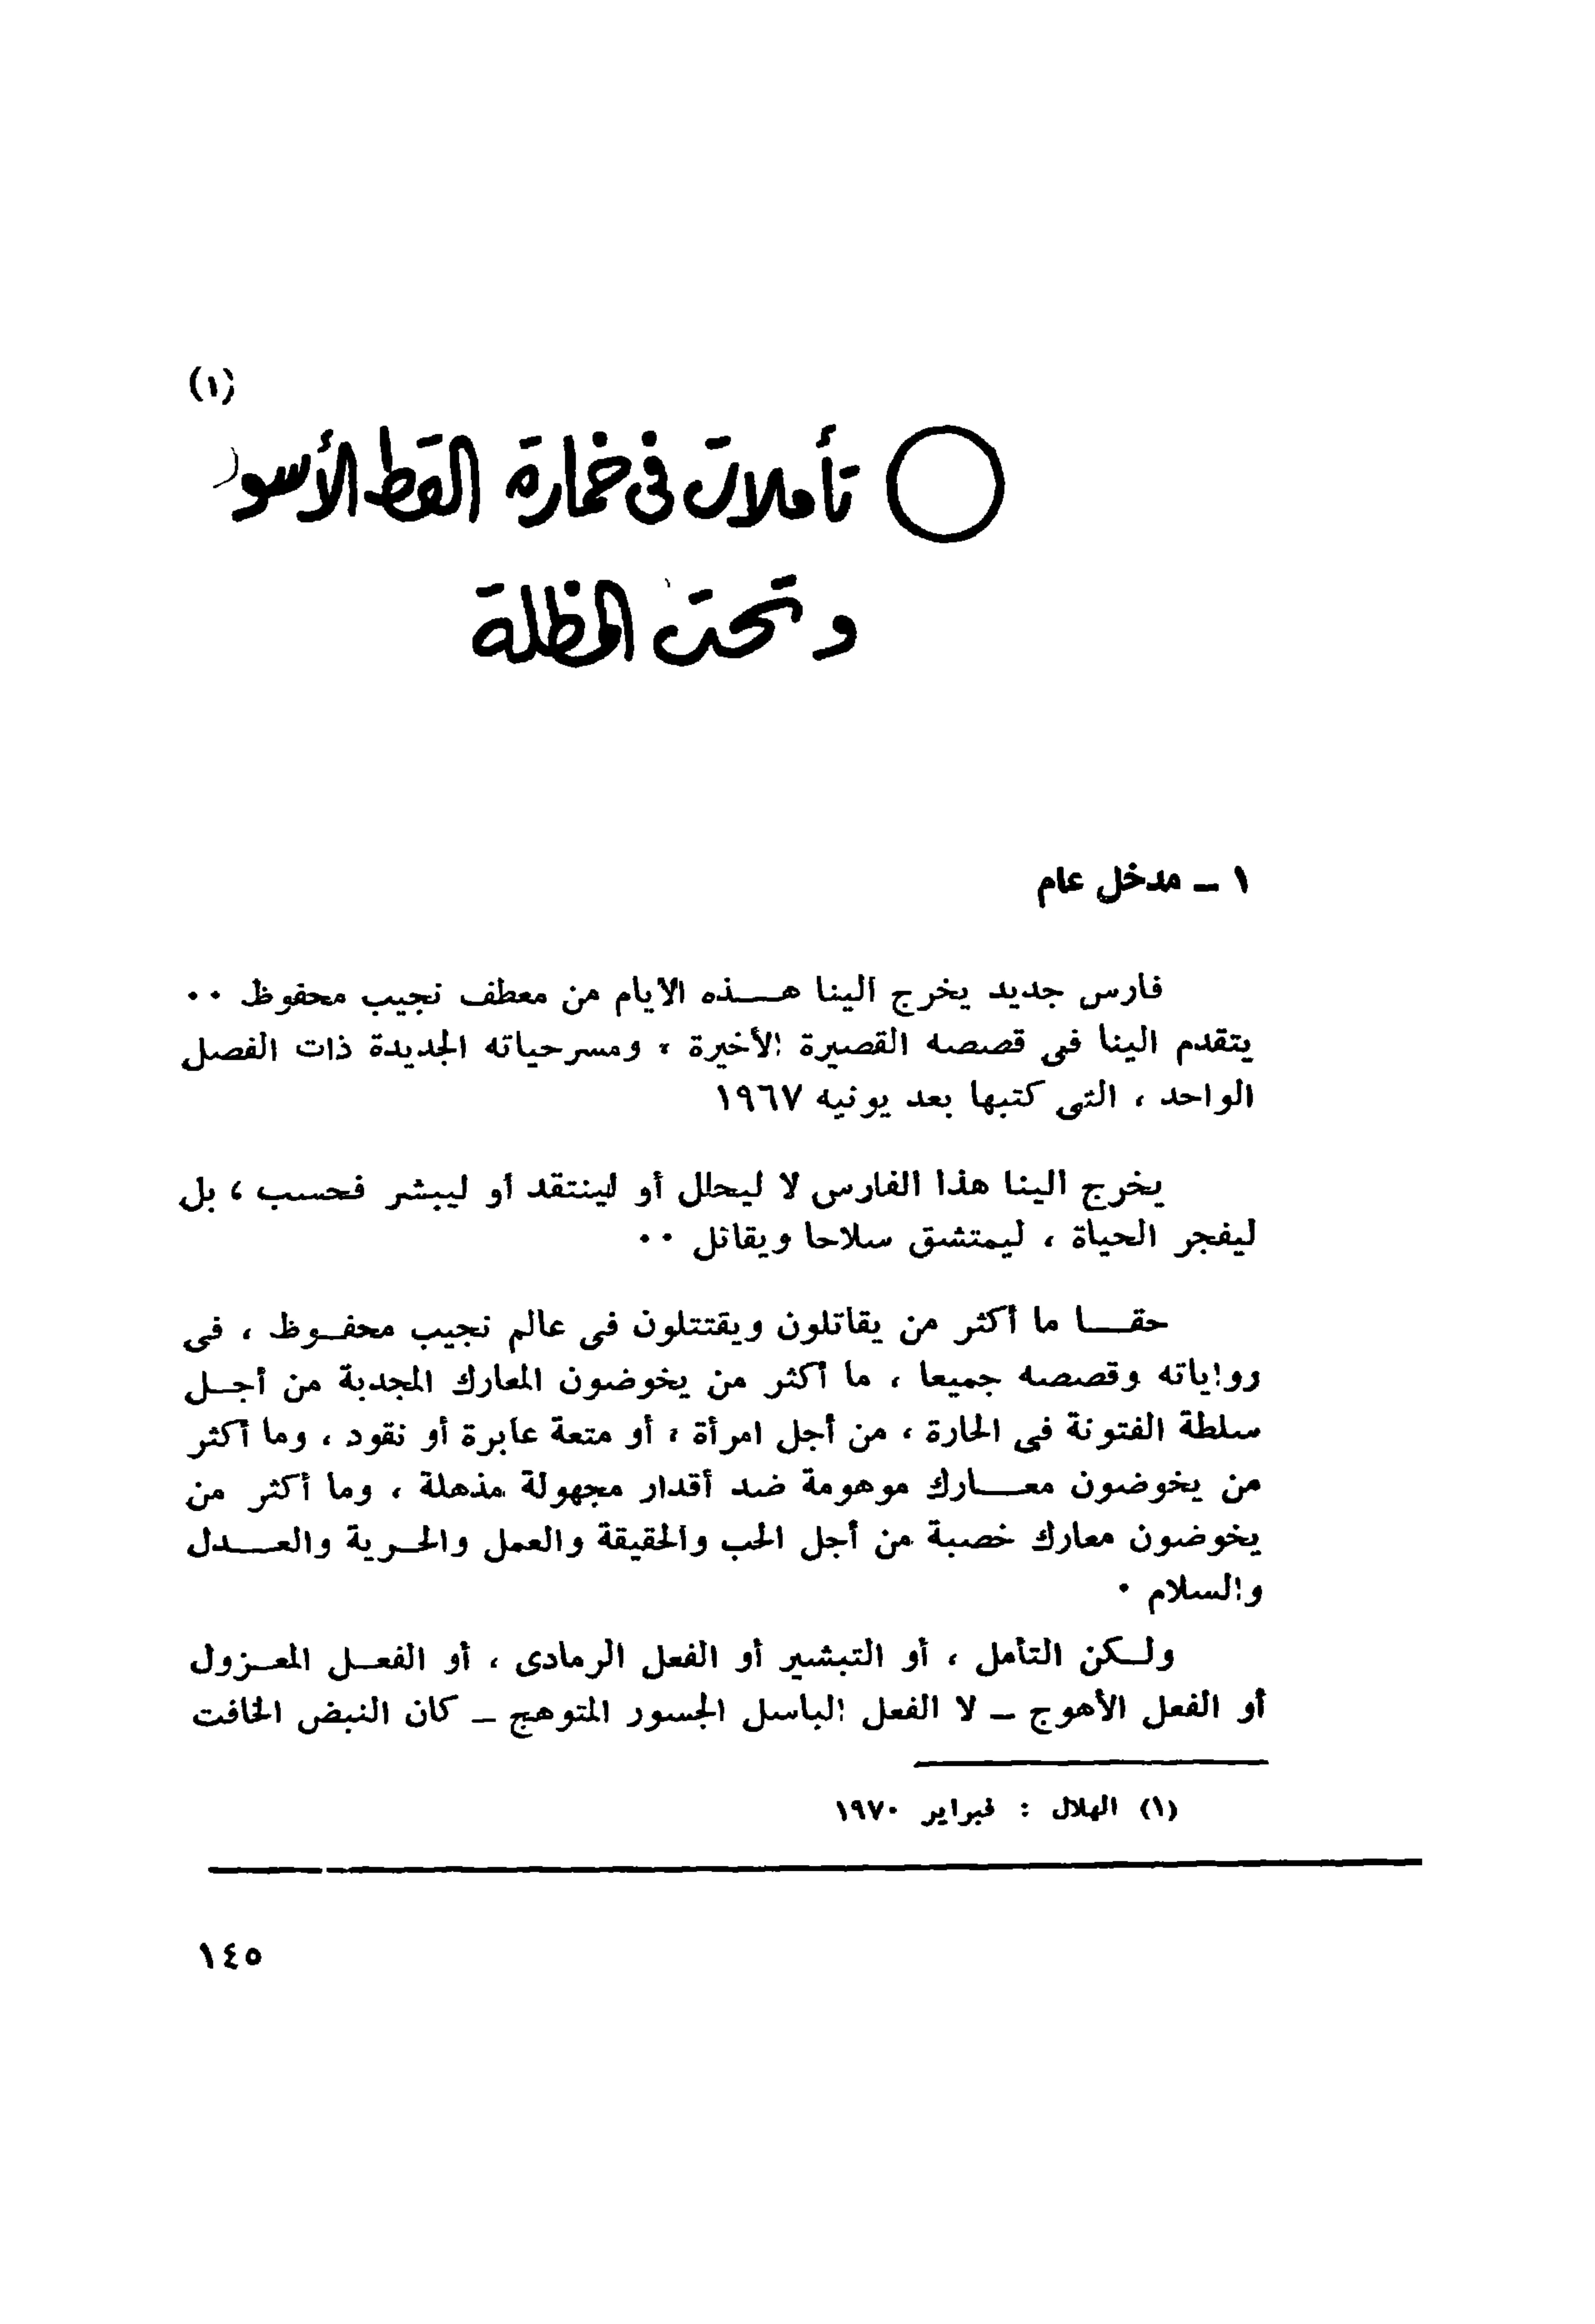 (١)
تأملات فى خمارة القط الأسود
وتحت المظلة
١ ــ مدخل عام
فارس جديد يخرج الينا هــذه الايام من معطف نجيب محفوظ ٠٠
يتقدم الينا فى قصصه القصيرة الأخيرة ، ومسرحياته الجديدة ذات الفصل
الواحد ، التى كتبها بعد يونيه ١٩٦٧
يخرج الينا هذا الفارس لا ليحلل أو لينتقد أو ليبشر فحسب ، بل
ليفجر الحياة ، ليمتشق سلاحا ويقاتل ٠٠
حقــا ما أكثر من يقاتلون ويقتتلون فى عالم نجيب محفــوظ ، فى
رواياته وقصصه جميعا ، ما أكثر من يخوضون المعارك المجدبة من أجــل
سلطة الفتونة فى الحارة ، من أجل امرأة ، أو متعة عابرة أو نقود ، وما أكثر
من يخوضون معــارك موهومة ضد أقدار مجهولة مذهلة ، وما أكثر من
يخوضون معارك خصبة من أجل الحب والحقيقة والعمل والحــرية والعــدل
والسلام ٠
ولــكن التأمل ، أو التبشير أو الفعل الرمادى ، أو الفعــل المعــزول
أو الفعل الأهوج ــ لا الفعل الباسل الجسور المتوهج ــ كان النبض الخافت
(١) الهلال : فبراير ١٩٧٠
١٤٥